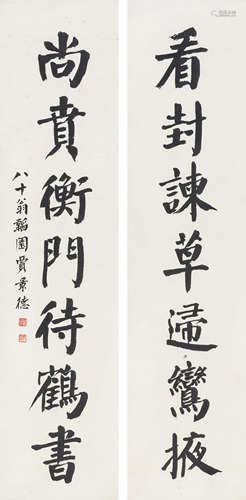 看封諫草遲鸞掖
尚賁衡門待鶴書
八十翁韜園賈景德